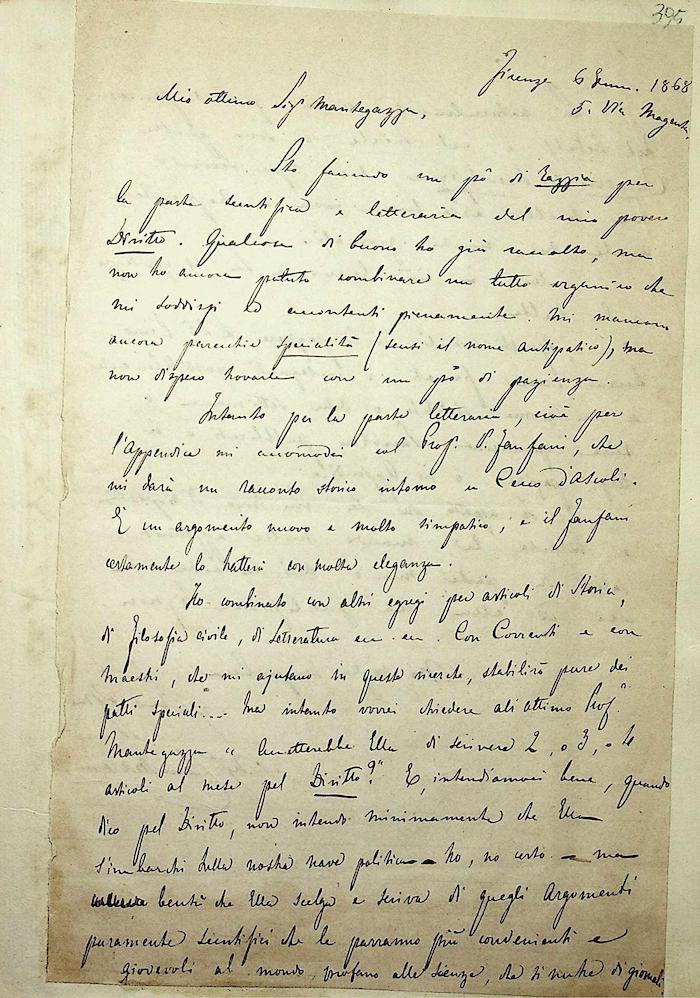 395
Firenze 6 Genn. 1868
5. Via Magenta
Mio ottimo Sigr Mantegazza,
Sto facendo un pò di razzia per
la parte scientifica e letteraria del mio povero
Diritto. Qualcosa di buono ho già raccolto, ma
non ho ancora potuto combinare un tutto organico che
mi soddisfi ed accontenti pienamente. Mi mancano
ancora parecchie specialità (scusi il nome antipatico), ma
non dispero trovarle con un pò di pazienza.
Intanto per la parte letteraria, cioè per
l'Appendice mi accomodai col Prof. P. Fanfani, che
mi darà un racconto storico intorno a Cecco d'Ascoli.
È un argomento nuovo e molto simpatico, e il Fanfani
certamente lo tratterà con molta eleganza.
Ho combinato con altri egregi per articoli di Storia,
di Filosofia civile, di Letteratura ecc. ecc. Con Correnti e con
Maestri, che mi ajutano in queste ricerche, stabilirò pure dei
patti speciali.... Ma intanto vorrei chiedere all'ottimo Prof.
Mantegazza "Accetterebbe Ella di scrivere 2, o 3, o 4
articoli al mese pel Diritto?" E, intendiamoci bene, quando
dico pel Diritto, non intendo minimamente che Ella
s'imbarchi sulla nostra nave politica — no, no certo — ma
bensì che Ella scelga e scriva di quegli Argomenti
puramente scientifici che le parranno più convenienti e
giovevoli al mondo, profano alle scienze, che si nutre di giornali.